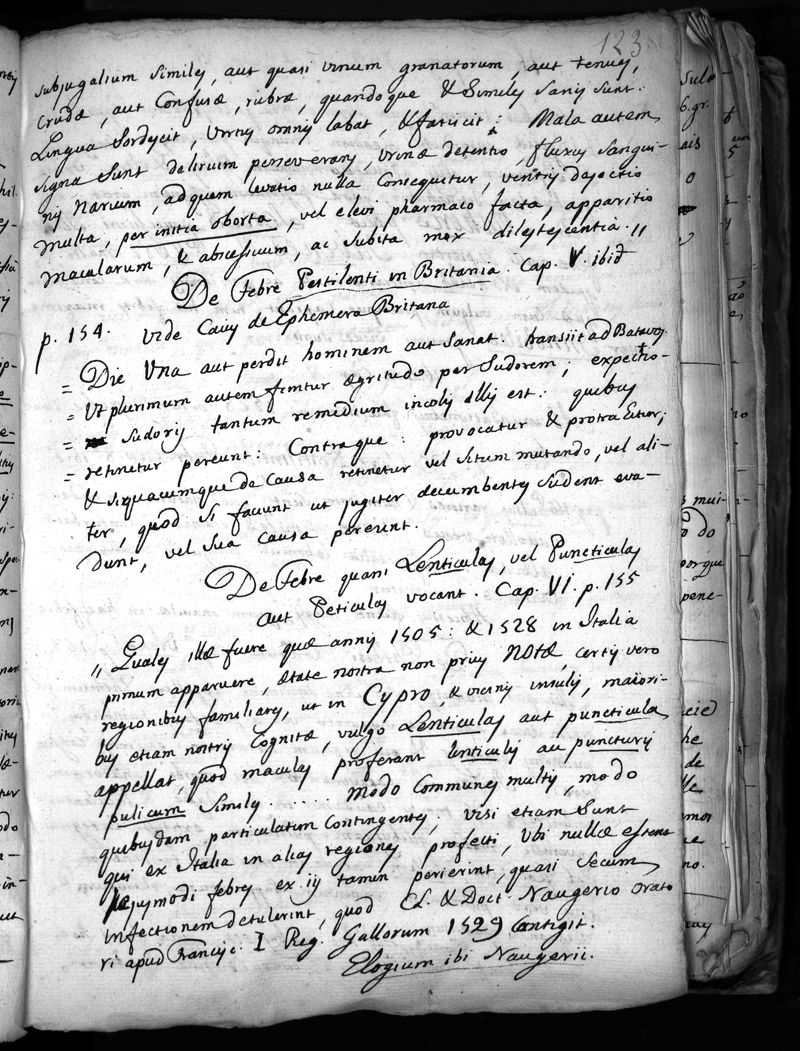 123
subjugalium similes, aut quasi vinum granatorum, aut tenues,
crudæ, aut confusæ, rubræ, quandoque & similes sanis sunt.
Lingua sordescit, virtus omnis labat, & fatiscit: Mala autem
signa sunt delirium perseverans, urinæ detentio, fluxus sangui-
nis narium, ad quem levatio nulla consequitur, ventris dejectio
multa, per initia oborta, vel elevi pharmaco facta, apparitio
macularum, & abscessuum, ac subita mox delitescentia. //
De Febre Pestilenti in Britania. Cap. V. ibid
p. 154. vide Caium de Ephemera Britana
= Die una aut perdit hominem aut sanat. transiit ad Batavos.
= Ut plurimum autem finitur ægritudo per sudorem; expectio-
= sudoris tantum remedium incolis illis est: quibus
= retinetur pereunt: Contraque: provocatur & protrahitur;
& si quacumque de causa retinetur vel situm mutando, vel ali-
ter, quod si faciunt ut jugiter decumbentes sudent eva-
dunt, vel sua causa pereunt.
De Febre quam Lenticulas, vel Puncticulas
aut Peticulas vocant. Cap. VI. p. 155
" Quales illæ fuere quæ annis 1505: & 1528 in Italia
primum apparuere, ætate nostra non prius notæ, certis vero
regionibus familiares, ut in Cypro, & vicinis insulis, maiori-
bus etiam nostris cognitæ, vulgo Lenticulas aut puncticulas
appellat, quod maculas proferant lenticulis aut puncturis
pulicum similes ..... modo communes multis, modo
quibusdam particulatim contingentes; visi etiam sunt
qui ex Italia in alias regiones profecti, ubi nullæ essent
hujusmodi febres ex iis tamen perierint, quasi secum
infectionem detulerint, quod Cl. & Doct. Naugerio orato
ri apud Francisc. I Reg. Gallorum 1529 contigit.
Elogium ibi Naugerii.